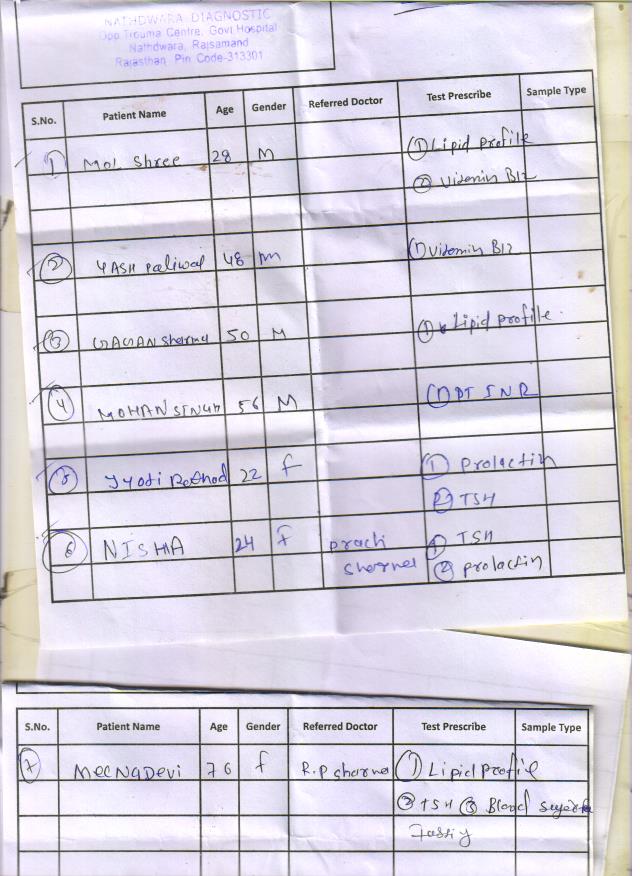 NATHDWARA DIAGNOSTIC
Opp Trouma Centre, Govt Hospital
Nathdwara, Rajsamand
Rajasthan Pin Code-313301
S.No. Patient Name Age Gender Referred Doctor Test Prescribe Sample Type
1 MOL Shree 28 M ① Lipid profile
② Vitamin B12
2 YASH paliwal 48 m ① Vitamin B12
3 GAGAN sharma 50 M ① Lipid profile.
4 MOHAN SINGH 56 M ① PT INR
5 Jyoti Rathod 22 f ① prolactin
② TSH
6 NISHA 24 f prachi ① TSH
sharma ② prolactin
S.No. Patient Name Age Gender Referred Doctor Test Prescribe Sample Type
7 MEENADevi 76 f R.P sharma ① Lipid profile
② TSH ③ Blood